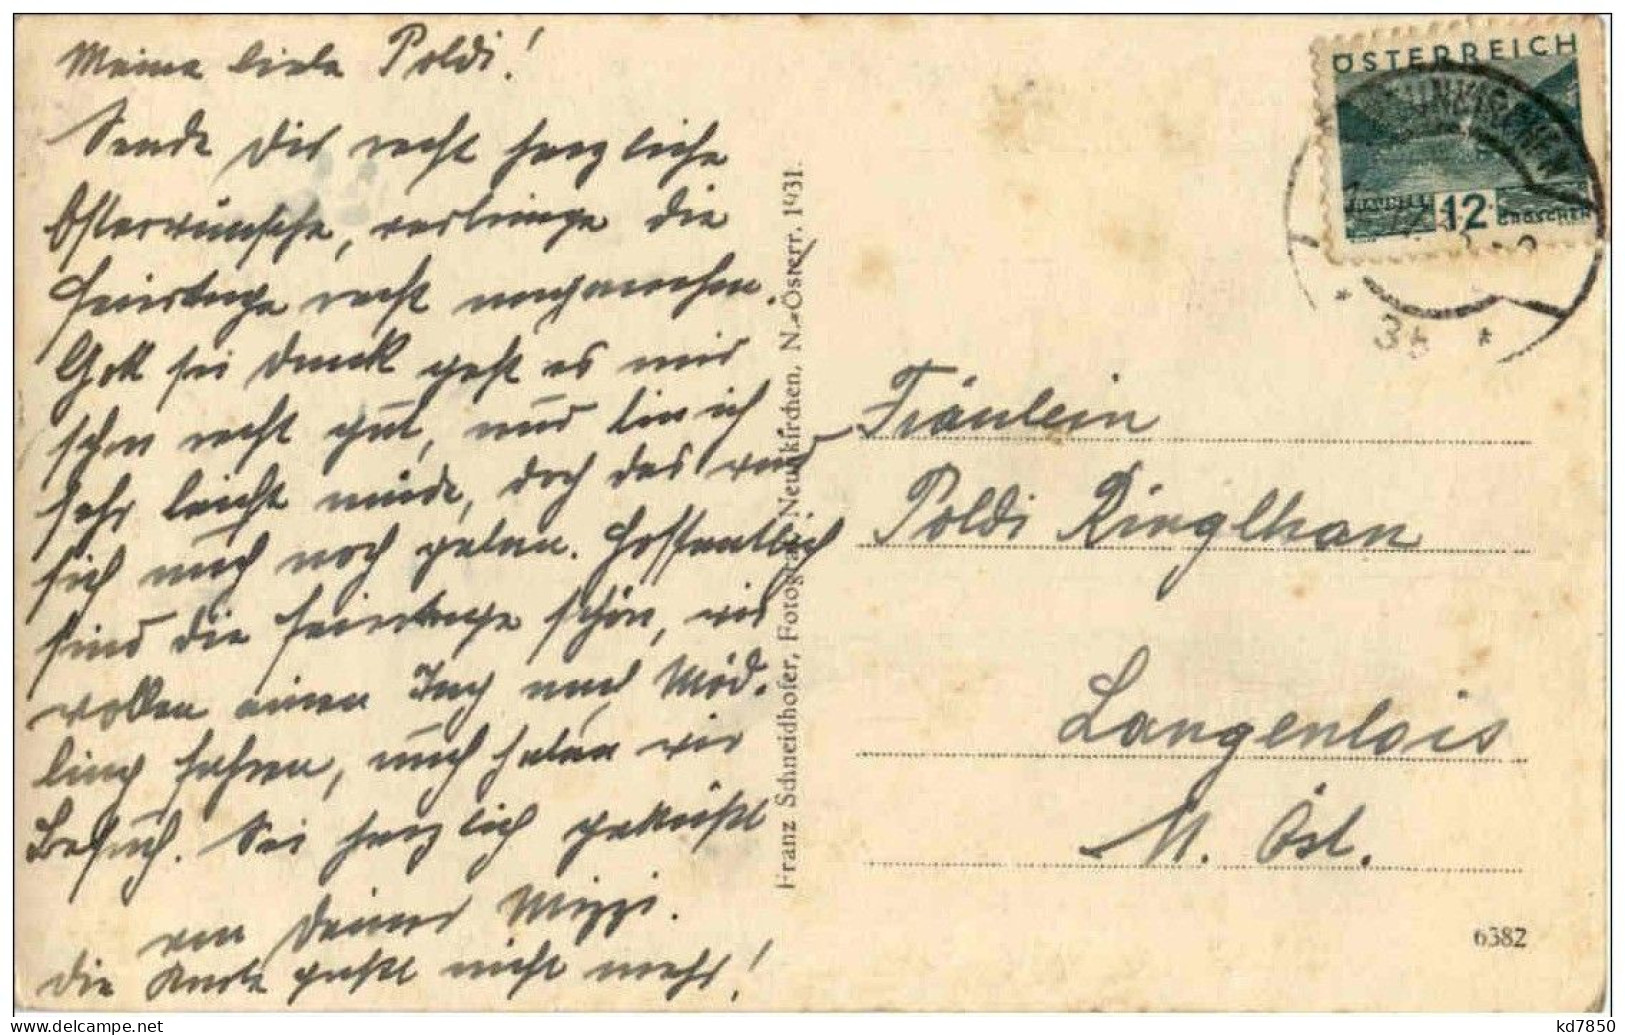 Meine liebe Poldi!
Sende Dir recht herzliche
Osterwünsche, verbringe die
Feiertage recht angenehm.
Gott sei Dank geht es mir
schon recht gut, nur bin ich
sehr leicht müde, doch das wird
sich auch noch geben. Hoffentlich
sind die Feiertage schön, wir
wollen einen Tag nach Möd-
ling fahren, auch haben wir
Besuch. Sei herzlich geküßt
von Deiner Mizzi.
Die Karte geht nicht mehr!
Franz Schneidhofer, Fotograf, Neunkirchen, N.-Österr. 1931.
ÖSTERREICH
NEUNKIRCHEN
12 GROSCHEN
* 3b *
Fräulein
Poldi Ringlhan
Langenlois
N. Öst.
6382
www.delcampe.net
kd7850